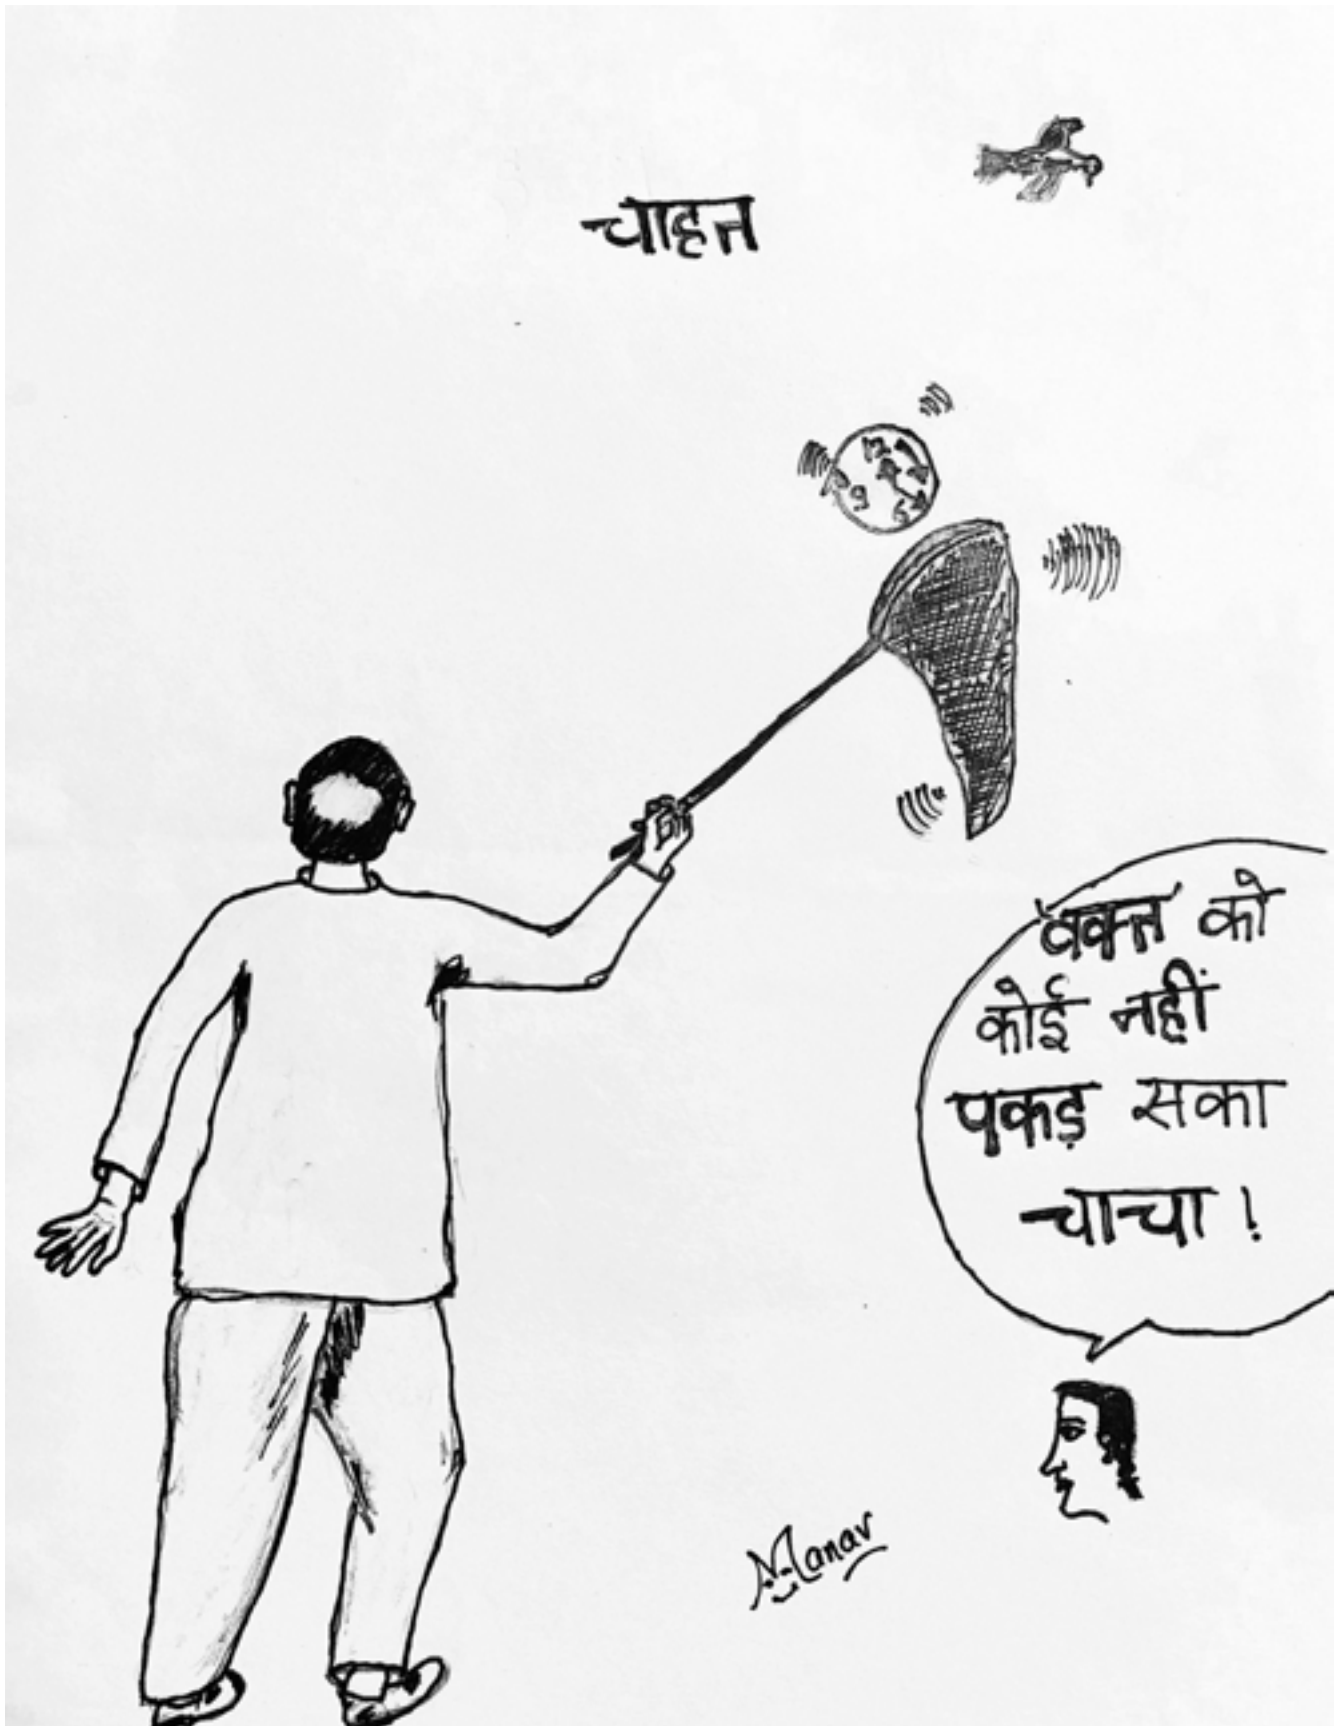 चाहत
12
9
'वक्त' को
कोई नहीं
पकड़ सका
चाचा !
Manav